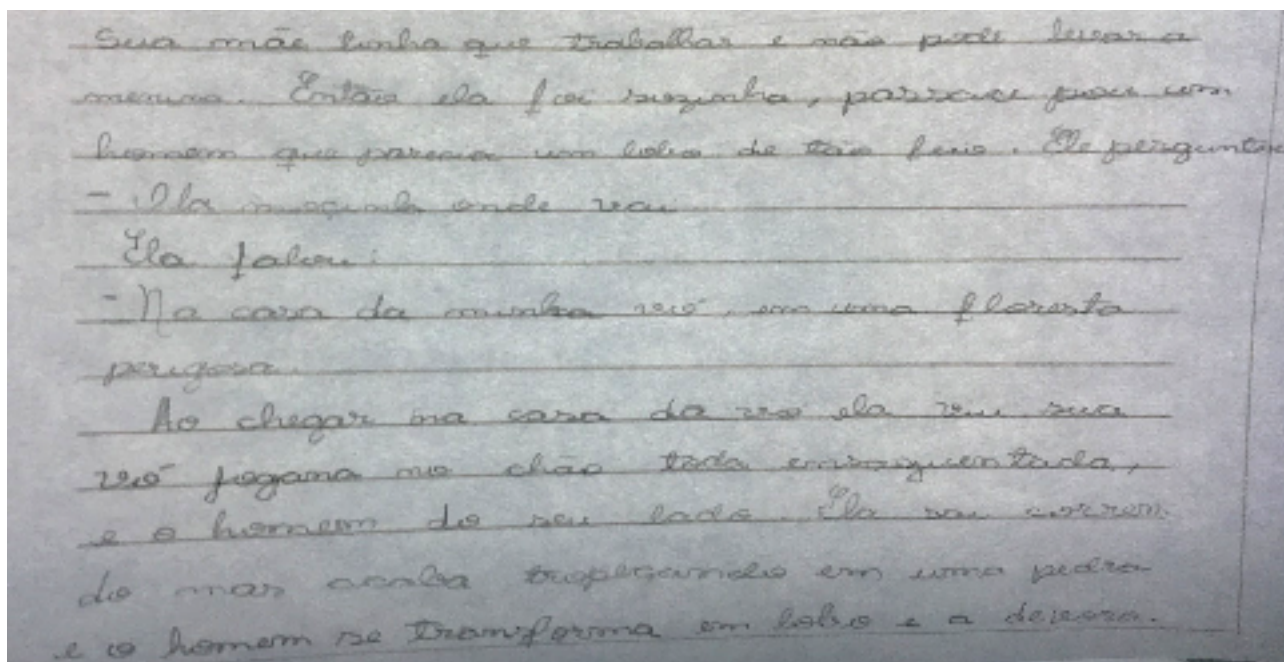 Sua mãe tinha que traballar e não pode levar a
menina. Então ela foi sozinha, passou por um
homem que parecia um lobo de tão feio. Ele perguntou
- Ola moçinha onde vai
Ela falou:
- Na casa da minha vó, em uma floresta
perigosa.
Ao chegar na casa da vó ela viu sua
vó jogana no chão toda ensanguentada,
e o homem do seu lado. Ela sai corren
do mas acaba tropeçando em uma pedra
e o homem se transforma em lobo e a devora.